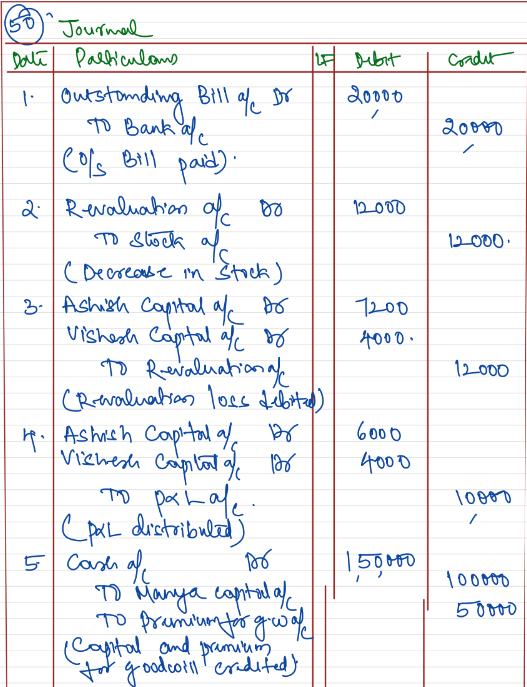 50 Journal
Date Particulars LF Debit Credit
1. Outstanding Bill a/c Dr 20000
To Bank a/c 20000
(O/s Bill paid).
2. Revaluation a/c Dr 12000
To Stock a/c 12000.
(Decrease in Stock)
3. Ashish Capital a/c Dr 7200
Vishesh Capital a/c Dr 4000.
To Revaluation a/c 12000
(Revaluation loss debited)
4. Ashish Capital a/c Dr 6000
Vishesh Capital a/c Dr 4000
To P&L a/c. 10000
(P&L distributed)
5 Cash a/c Dr 150000
To Manya capital a/c 100000
To Premium for g.w a/c 50000
(Capital and premium
for goodwill credited)